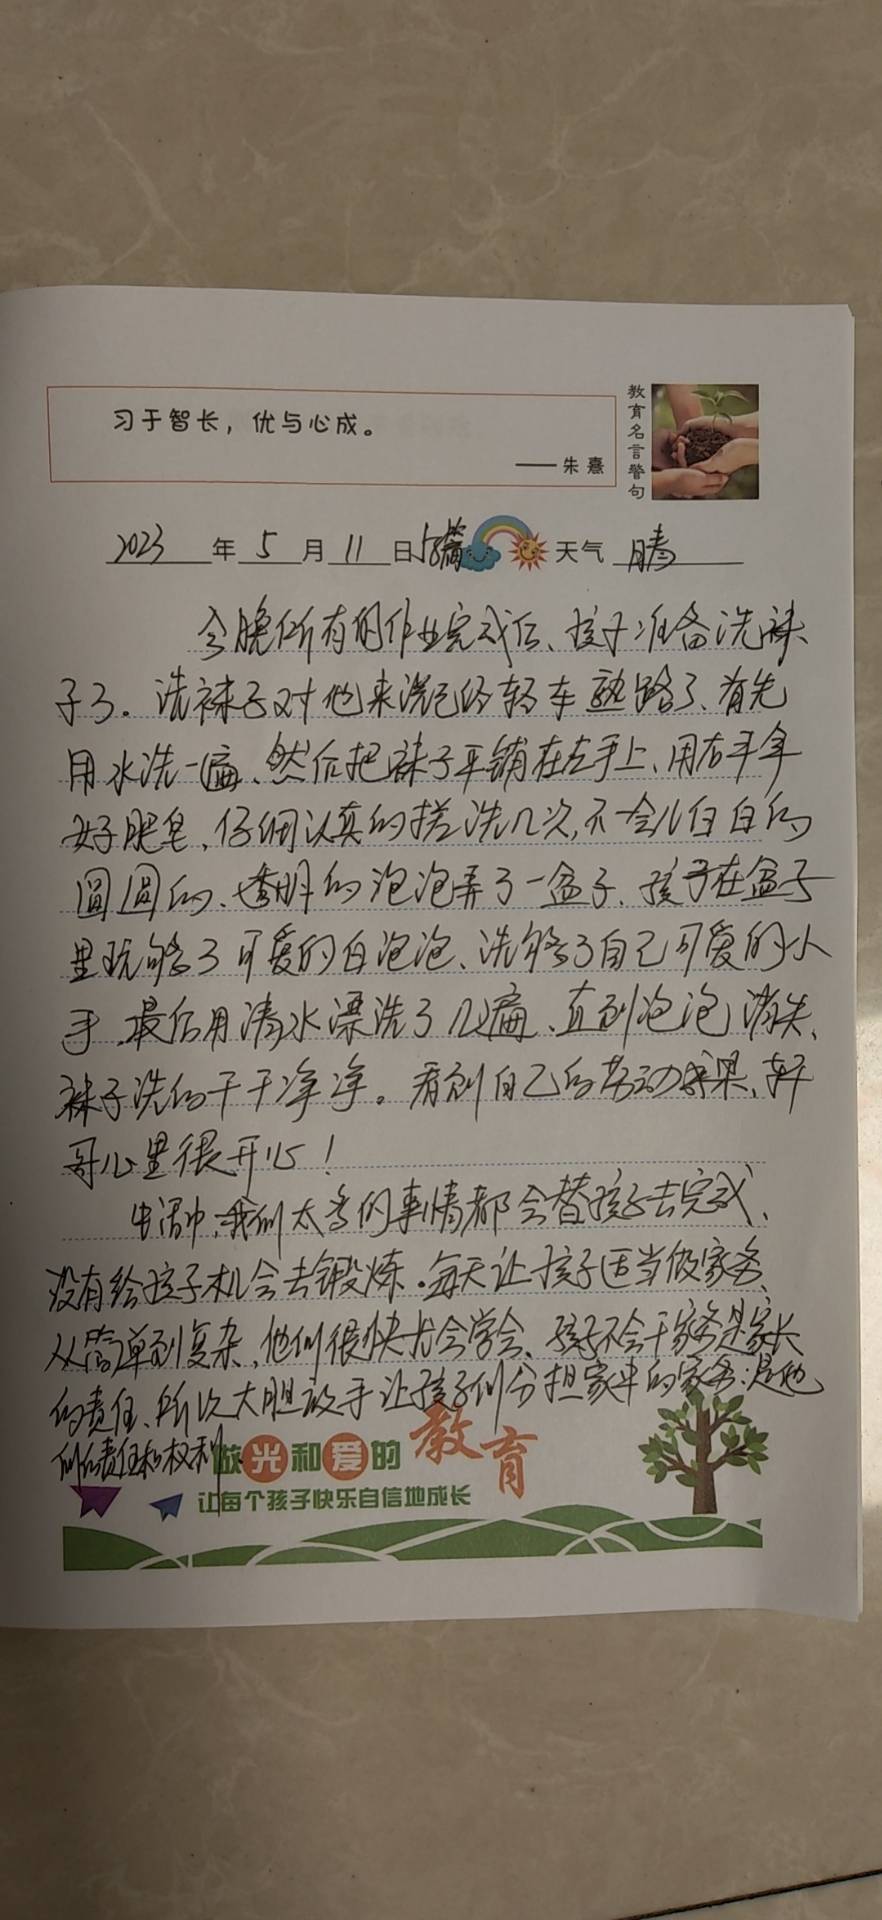 习于智长，优与心成。
——朱熹
教育名言警句
2023年5月11日 篇 天气 晴
今晚所有的作业完成后、孩子准备洗袜
子了。洗袜子对他来说已经轻车熟路了、首先
用水洗一遍、然后把袜子平铺在左手上、用右手拿
好肥皂，仔细认真的搓洗几次，不一会儿白白的
圆圆的、透明的泡泡弄了一盆子、孩子在盆子
里玩够了可爱的白泡泡、洗够了自己可爱的小
手，最后用清水漂洗了几遍、直到泡泡消失、
袜子洗的干干净净。看到自己的劳动成果、轩
哥心里很开心！
生活中，我们太多的事情都会替孩子去完成、
没有给孩子机会去锻炼。每天让孩子适当做家务、
从简单到复杂，他们很快就会学会、孩子不会干家务是家长
的责任、所以大胆放手让孩子们分担家中的家务：是他
们的责任和权利
做光和爱的教育
让每个孩子快乐自信地成长